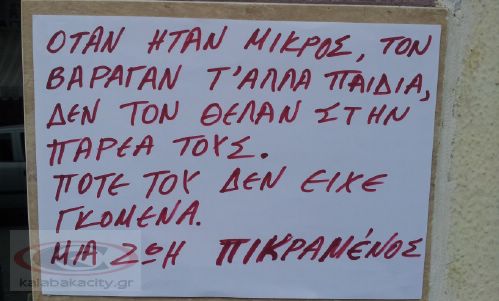 ΟΤΑΝ ΗΤΑΝ ΜΙΚΡΟΣ, ΤΟΝ
ΒΑΡΑΓΑΝ Τ'ΑΛΛΑ ΠΑΙΔΙΑ,
ΔΕΝ ΤΟΝ ΘΕΛΑΝ ΣΤΗΝ
ΠΑΡΕΑ ΤΟΥΣ.
ΠΟΤΕ ΤΟΥ ΔΕΝ ΕΙΧΕ
ΓΚΟΜΕΝΑ.
ΜΙΑ ΖΩΗ ΠΙΚΡΑΜΕΝΟΣ
kalabakacity.gr